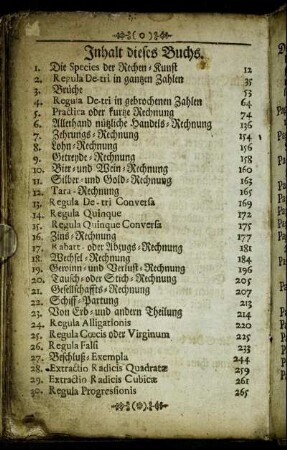 Inhalt dieses Buchs.
1. Die Species der Rechen-Kunst 12
2. Regula De-tri in gantzen Zahlen 35
3. Brüche 53
4. Regula De-tri in gebrochenen Zahlen 64
5. Practica oder kurtze Rechnung 74
6. Allerhand nützliche Handels-Rechnung 136
7. Zehrungs-Rechnung 154
8. Lohn-Rechnung 156
9. Getreyde-Rechnung 158
10. Bier-und Wein-Rechnung 160
11. Silber-und Gold-Rechnung 163
12. Tara-Rechnung 165
13. Regula De-tri Conversa 169
14. Regula Quinque 172
15. Regula Quinque Conversa 175
16. Zins-Rechnung 177
17. Rabatt-oder Abzugs-Rechnung 181
18. Wechsel-Rechnung 184
19. Gewinn-und Verlust-Rechnung 196
20. Tausch-oder Stich-Rechnung 205
21. Gesellschaffts-Rechnung 207
22. Schiff-Partung 213
23. Von Erb-und andern Theilung 214
24. Regula Alligationis 220
25. Regula Cœcis oder Virginum 225
26. Regula Falsi 233
27. Beschluß-Exempla 244
28. Extractio Radicis Quadratæ 259
29. Extractio Radicis Cubicæ 261
30. Regula Progressionis 265